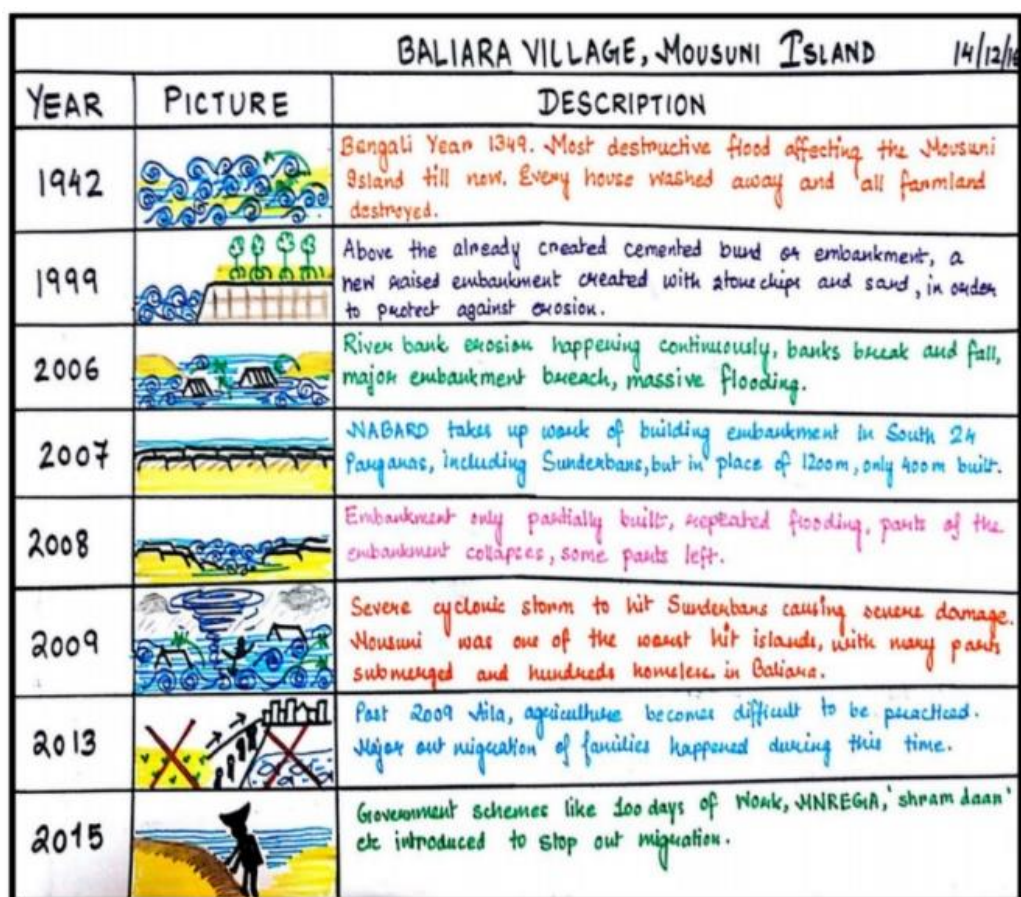 BALIARA VILLAGE, MOUSUNI ISLAND 14/12/1
YEAR PICTURE DESCRIPTION
1942
Bengali Year 1349. Most destructive flood affecting the Mousuni
Island till now. Every house washed away and all farmland
destroyed.
1999
Above the already created cemented bund or embankment, a
new raised embankment created with stone chips and sand, in order
to protect against erosion.
2006
River bank erosion happening continuously, banks break and fall,
major embankment breach, massive flooding.
2007
NABARD takes up work of building embankment in South 24
Parganas, including Sunderbans, but in place of 1200m, only 400m built.
2008
Embankment only partially built, repeated flooding, parts of the
embankment collapses, some parts left.
2009
Severe cyclonic storm to hit Sunderbans causing severe damage.
Mousuni was one of the worst hit islands, with many parts
submerged and hundreds homeless in Baliara.
2013
Post 2009 Aila, agriculture becomes difficult to be practiced.
Major out migration of families happened during this time.
2015
Government schemes like 100 days of work, MNREGA, 'shram daan'
etc introduced to stop out migration.